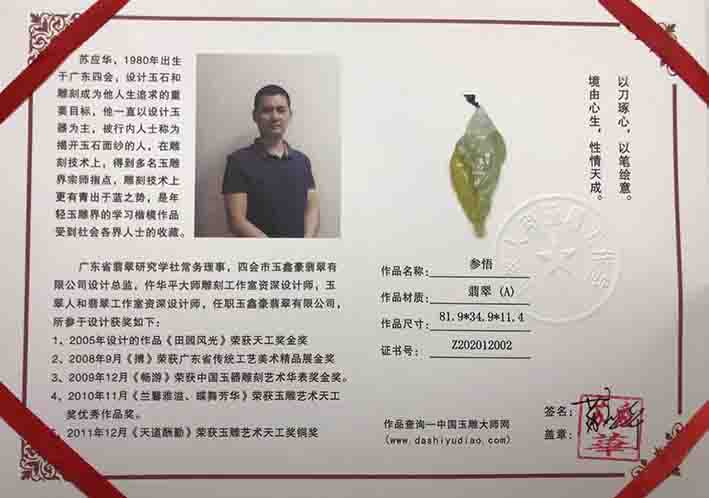 苏应华，1980年出生
于广东四会，设计玉石和
雕刻成为他人生追求的重
要目标，他一直以设计玉
器为主，被行内人士称为
揭开玉石面纱的人，在雕
刻技术上，得到多名玉雕
界宗师指点，雕刻技术上
更有青出于蓝之势，是年
轻玉雕界的学习楷模作品
受到社会各界人士的收藏。
广东省翡翠研究学社常务理事，四会市玉鑫豪翡翠有
限公司设计总监，仵华平大师雕刻工作室资深设计师，玉
翠人和翡翠工作室资深设计师，任职玉鑫豪翡翠有限公司，
所参于设计获奖如下：
1、2005年设计的作品《田园风光》荣获天工奖金奖
2、2008年9月《搏》荣获广东省传统工艺美术精品展金奖
3、2009年12月《畅游》荣获中国玉器雕刻艺术华表奖金奖。
4、2010年11月《兰馨雅溢、蝶舞芳华》荣获玉雕艺术天工
奖优秀作品奖。
5、2011年12月《天道酬勤》荣获玉雕艺术天工奖铜奖
以刀琢心，以笔绘意。
境由心生，性情天成。
作品名称：参悟
作品材质：翡翠（A）
作品尺寸：81.9*34.9*11.4
证书号：Z202012002
作品查询—中国玉雕大师网
(www.dashiyudiao.com)
签名：
盖章：
華